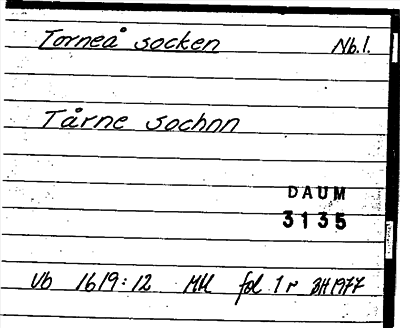 Torneå socken Nb.l.
Tårne sochnn
DAUM
3135
Vb 1619:12 MH fol 1r BH 1977